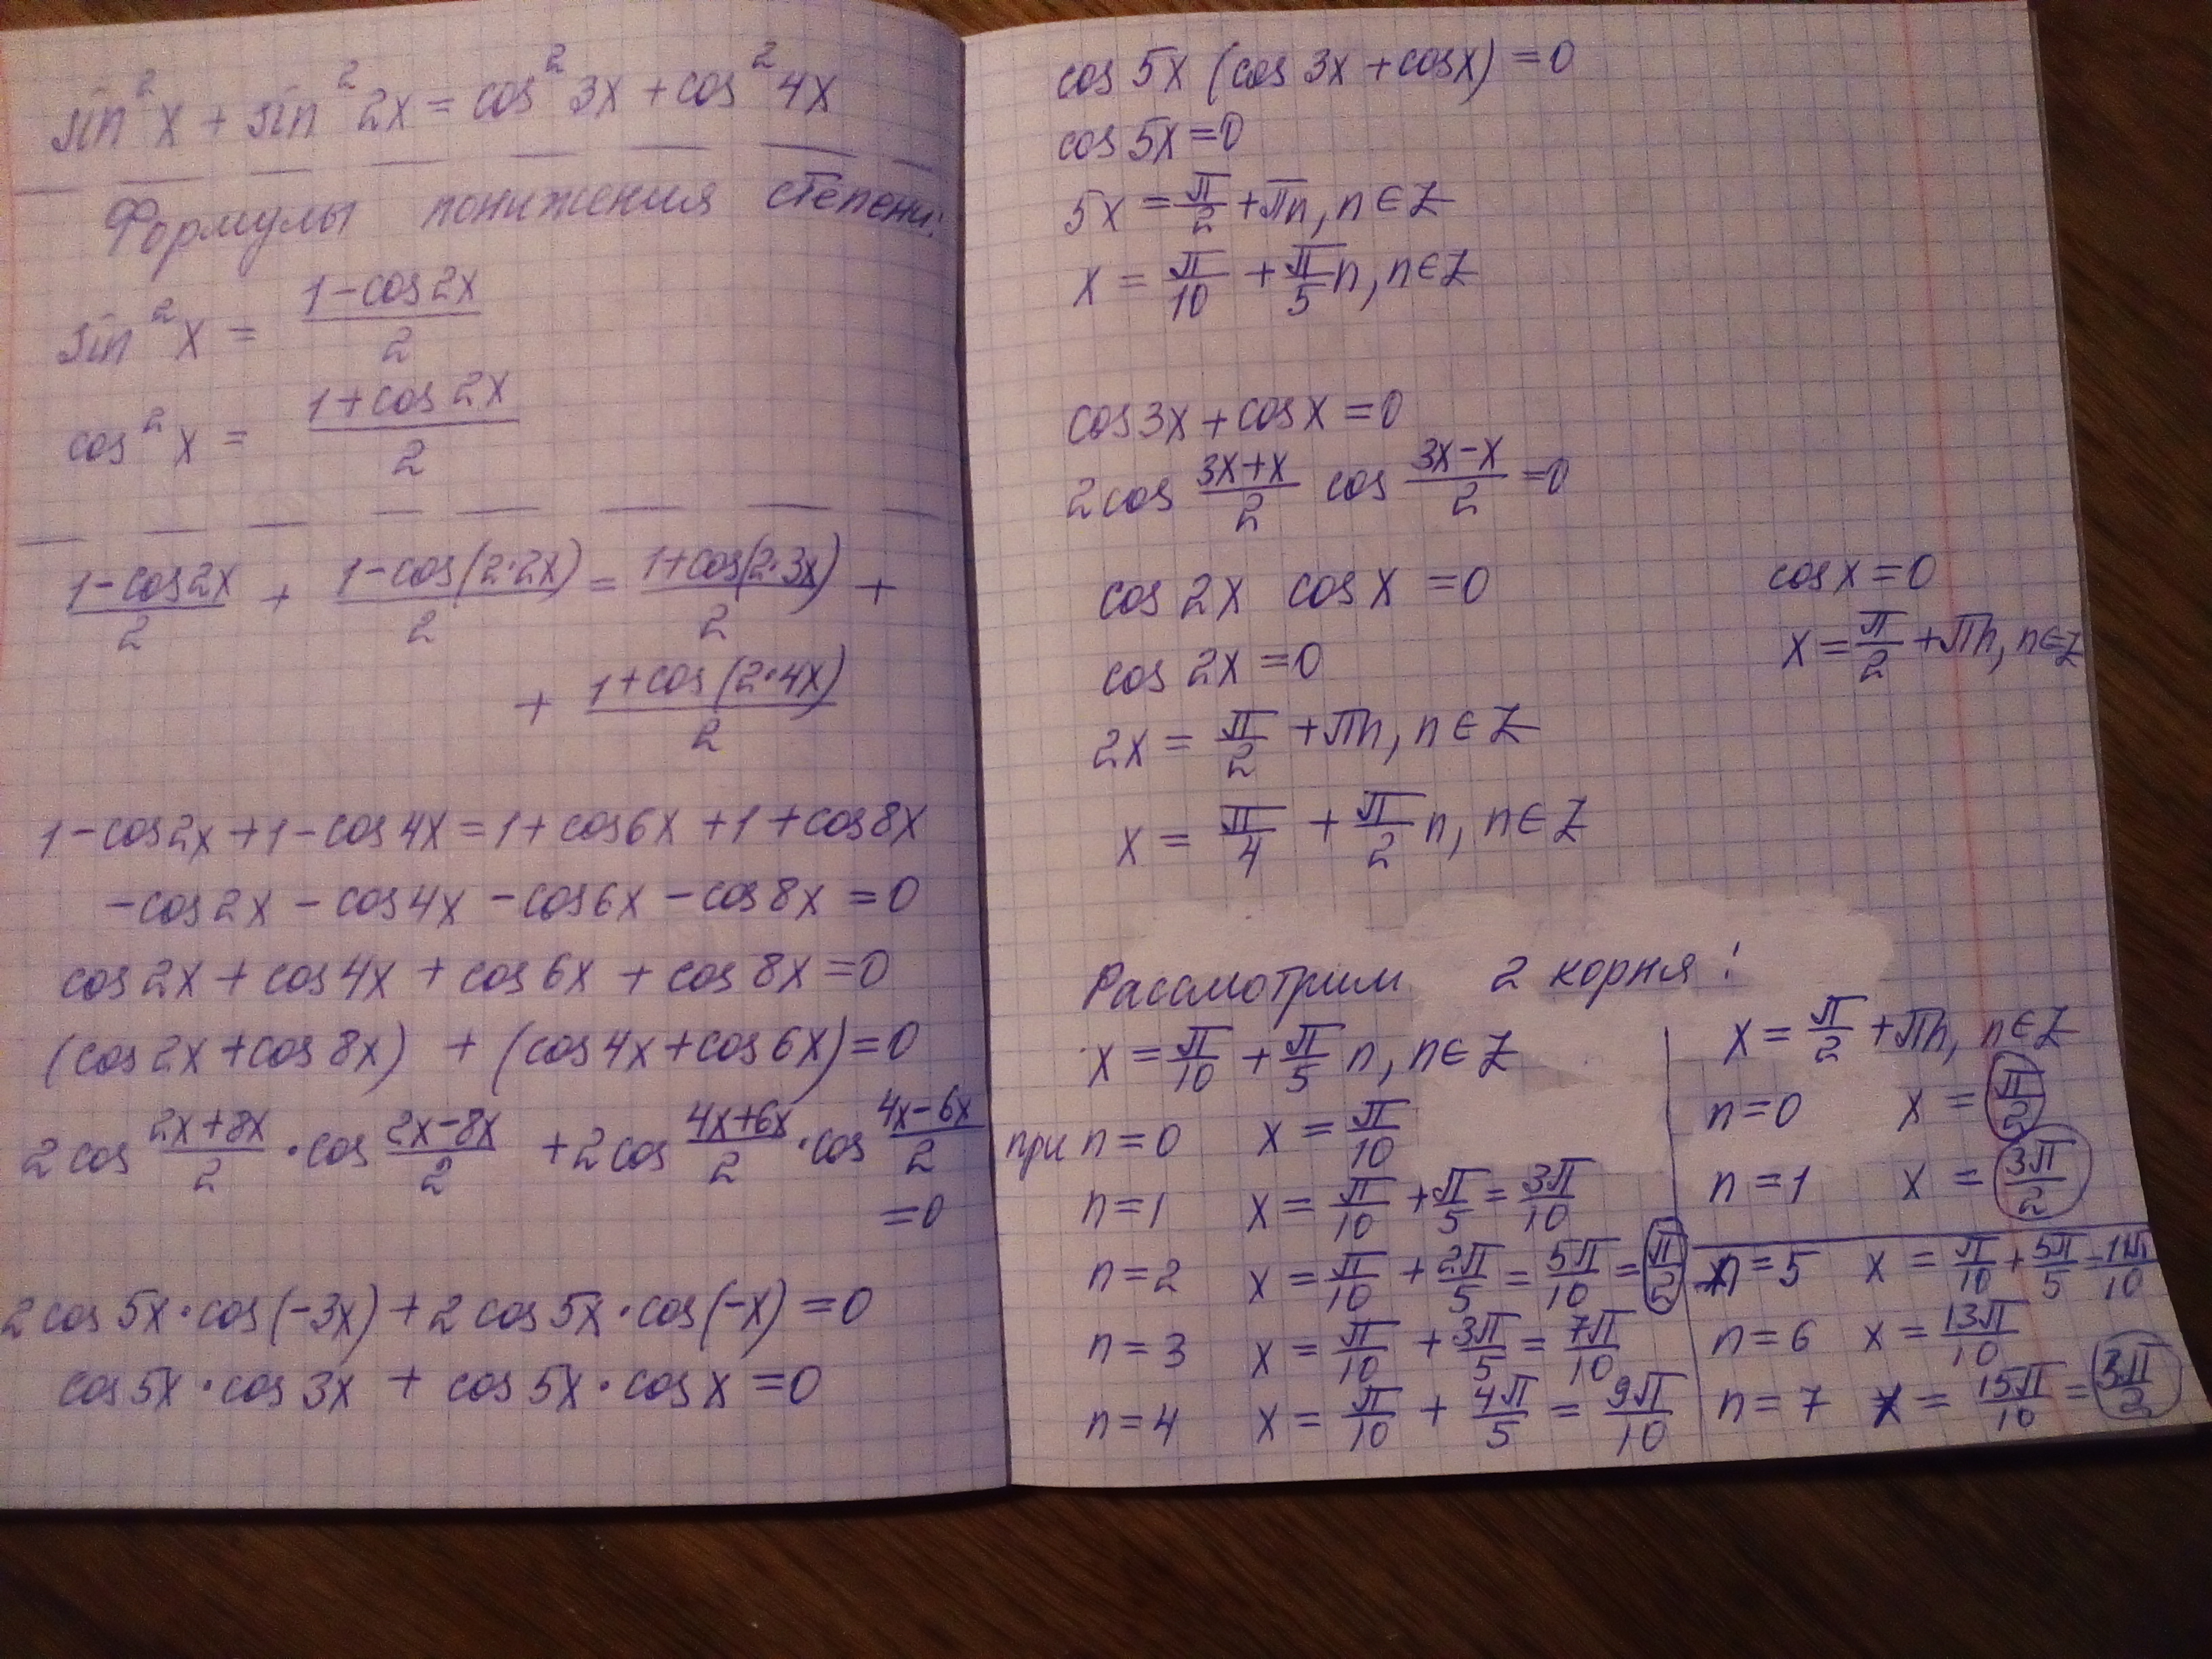 sin²x + sin²2x = cos²3x + cos²4x
Формулы понижения степени:
sin²x = (1-cos2x)/2
cos²x = (1+cos2x)/2
(1-cos2x)/2 + (1-cos(2·2x))/2 = (1+cos(2·3x))/2 +
+ (1+cos(2·4x))/2
1-cos2x+1-cos4x=1+cos6x+1+cos8x
-cos2x-cos4x-cos6x-cos8x=0
cos2x+cos4x+cos6x+cos8x=0
(cos2x+cos8x) + (cos4x+cos6x)=0
2cos (2x+8x)/2 · cos (2x-8x)/2 + 2cos (4x+6x)/2 · cos (4x-6x)/2
=0
2cos5x·cos(-3x)+2cos5x·cos(-x)=0
cos5x·cos3x + cos5x·cosx=0
cos5x(cos3x+cosx)=0
cos5x=0
5x=π/2+πn, n∈Z
x=π/10+π/5 n, n∈Z
cos3x+cosx=0
2cos (3x+x)/2 cos (3x-x)/2=0
cos2x cosx=0
cos2x=0
2x=π/2+πn, n∈Z
x=π/4+π/2 n, n∈Z
cosx=0
x=π/2+πn, n∈Z
Рассмотрим 2 корня:
x=π/10+π/5 n, n∈Z
при n=0 x=π/10
n=1 x=π/10+π/5=3π/10
n=2 x=π/10+2π/5=5π/10=π/2
n=3 x=π/10+3π/5=7π/10
n=4 x=π/10+4π/5=9π/10
x=π/2+πn, n∈Z
n=0 x=π/2
n=1 x=3π/2
n=5 x=π/10+5π/5=11π/10
n=6 x=13π/10
n=7 x=15π/10=3π/2